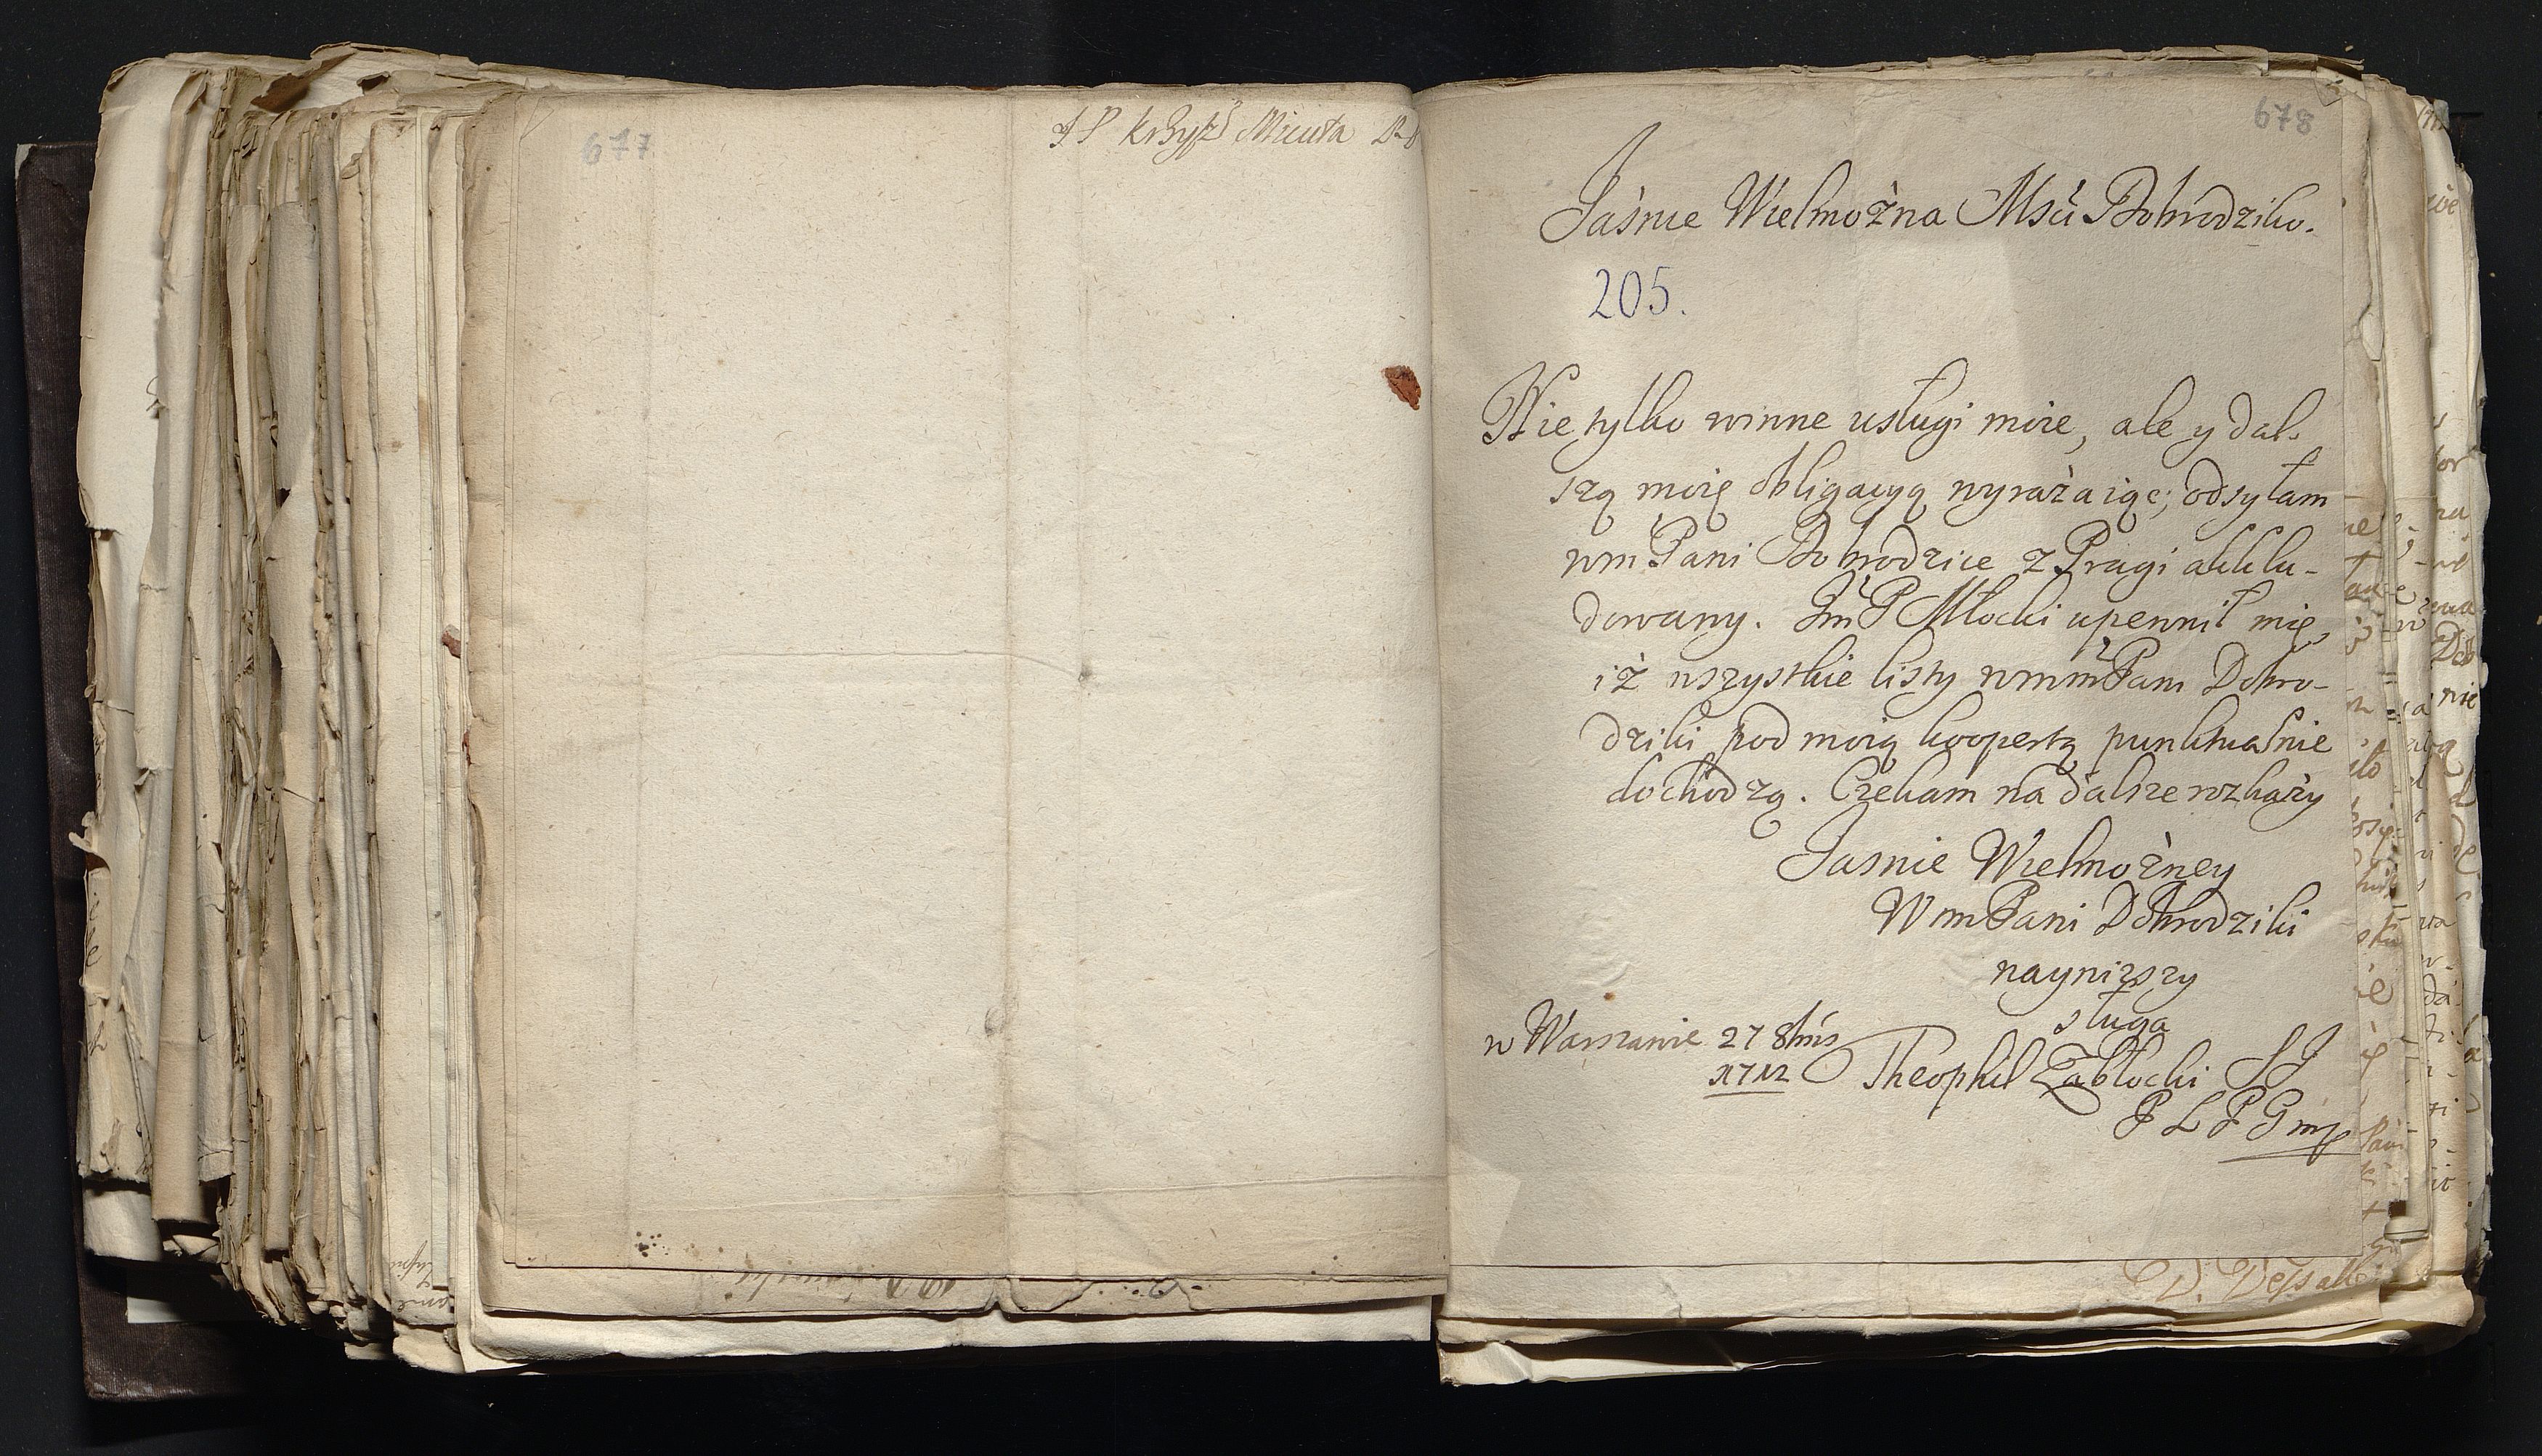 677
678
Jaśnie Wielmożna Mscia Dobrodziko.
205.
Nie tylko winne usługi moie, ale y dal-
szą moię obligacyą wyrażaiąc, odsyłam
wm Pani Dobrodzice z Pragi akklu-
dowany. Jm P Młocki upewnił mię,
iż wszystkie listy wmm Pani Dobro-
dziki pod moią koopertą punktualnie
dochodzą. Czekam na dalsze rozkazy
Jasnie Wielmożney
Wm Pani Dobrodziki
nayniższy
sługa
w Warszawie 27 8bris
1712
Theophil Zabłocki SJ
P L P G mp